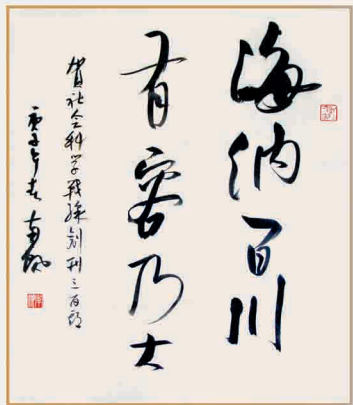 海纳百川
有容乃大
贺社会科学战线创刊三百期
庚子年春 南帆